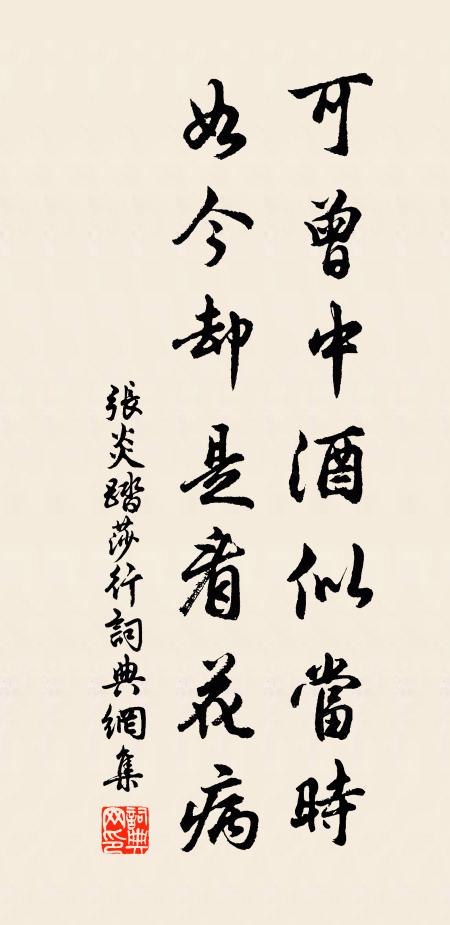 可曾中酒似當時
如今却是看花病
張炎踏莎行詞典網集
詞典網印